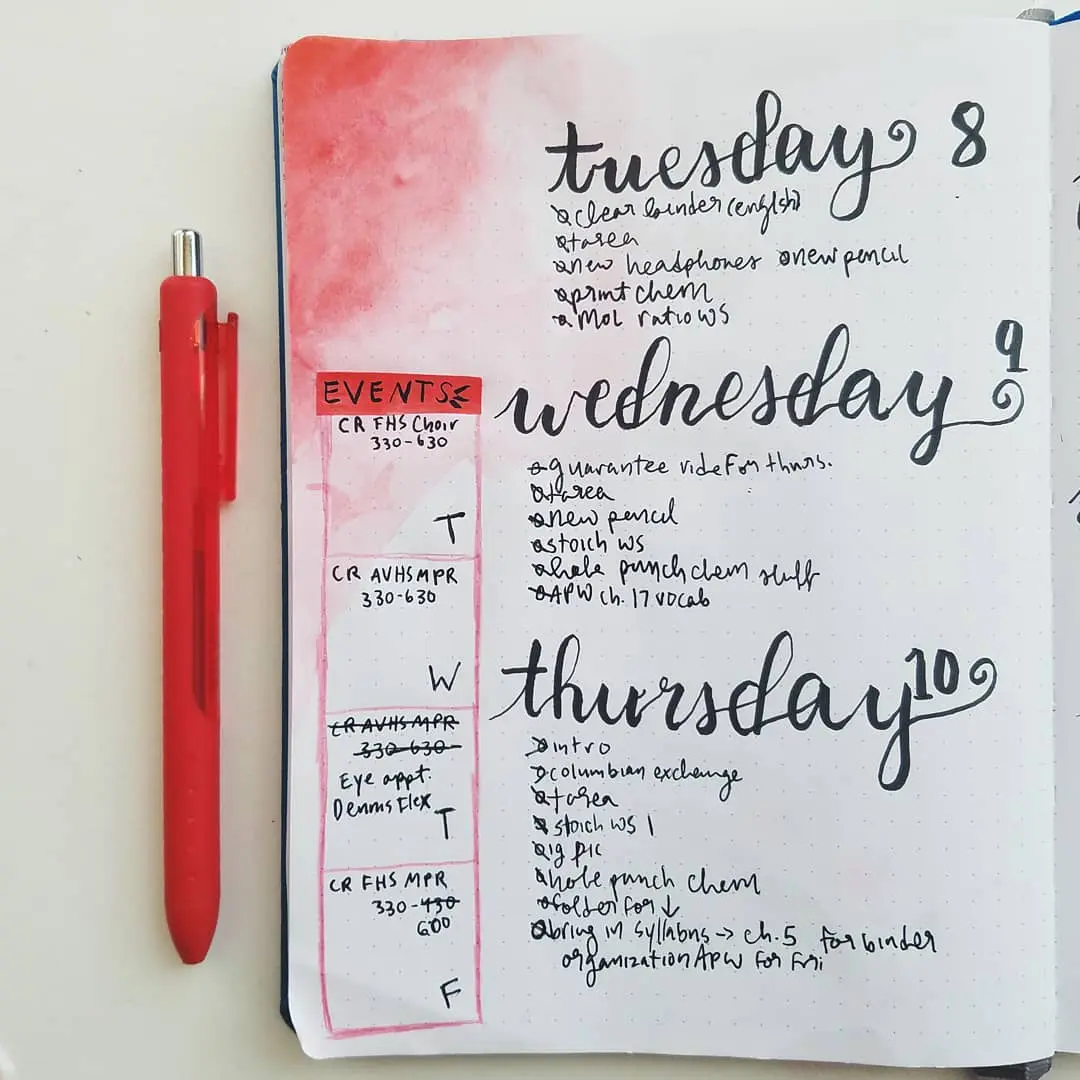 tuesday 8
clear binder (english)
tarea
new headphones new pencil
print chem
Mol ratio WS
EVENTS
CR FHS Choir
330-630
T
CR AVHS MPR
330-630
W
CR AVHS MPR
330-630
Eye appt.
T
CR FHS MPR
330-430
600
F
wednesday 9
guarantee ride For thurs.
tarea
new pencil
stoich WS
punch chem stuff
APW ch. 17 vocab
thursday 10
intro
columbian exchange
tarea
stoich WS 1
ig pic
hole punch chem
folder for ↓
bring in syllabus → ch. 5 for binder
organization APW For Fri